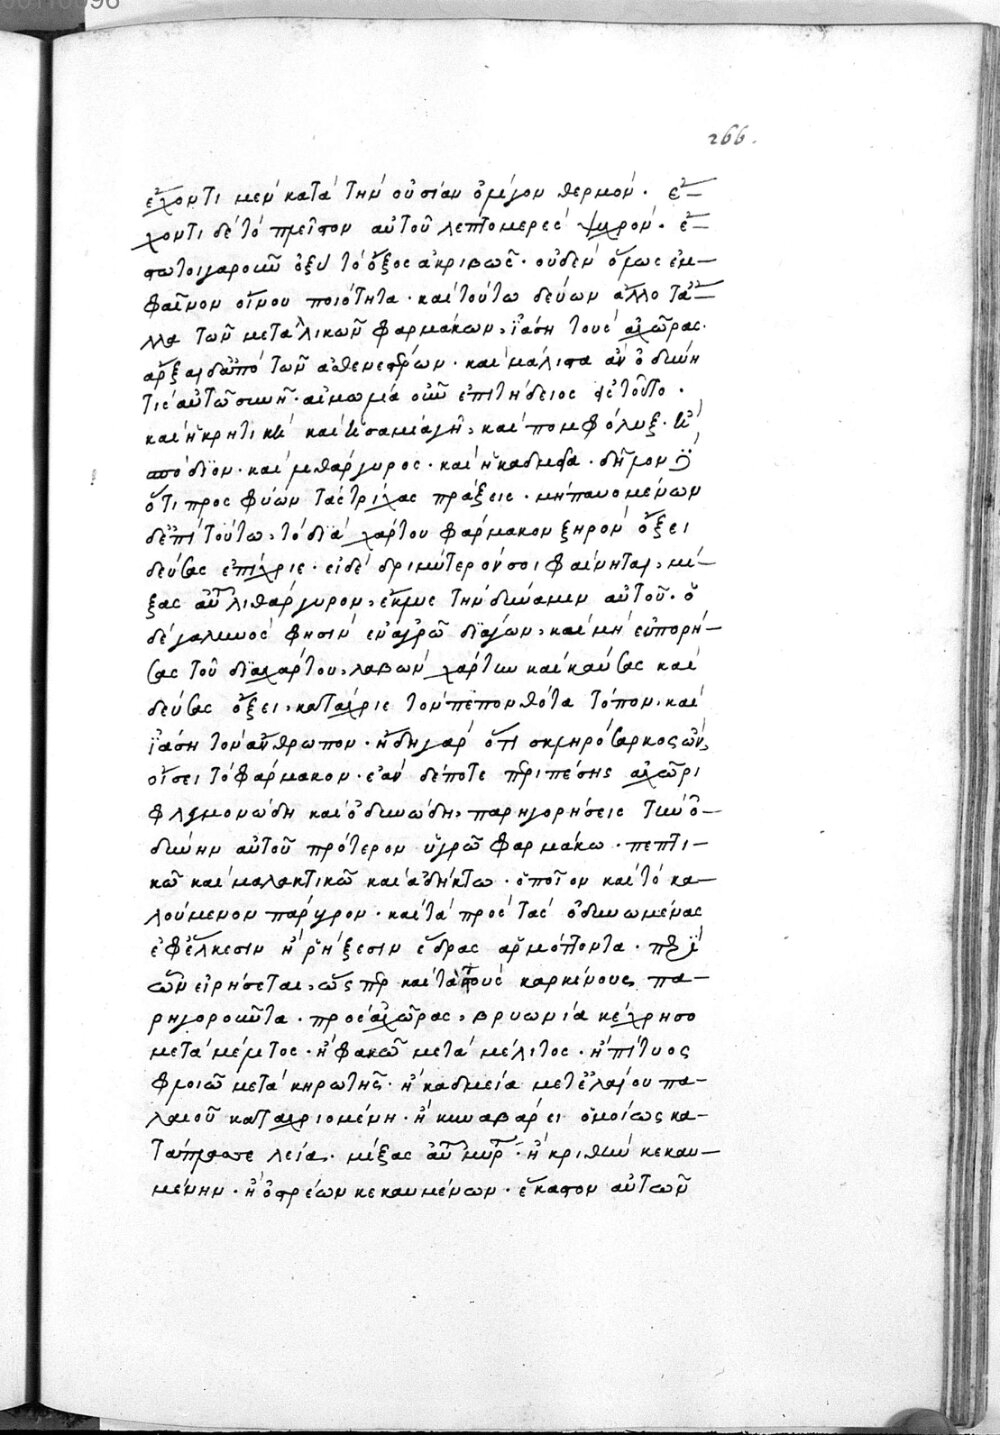 266.
ἔχοντι μὲν κατὰ τὴν οὐσίαν ὀλίγον θερμόν. ἔ-
χοντι δὲ τὸ πλεῖστον αὑτοῦ λεπτομερὲς ψυχρόν. ἔ-
στω τοιγαροῦν ὀξὺ τὸ ὄξος ἀκριβῶς. οὐδὲν ὅμως ἐμ-
φαῖνον οἴνου ποιότητα. καὶ τούτω δεύων ἄλλο τἄ-
λλα τῶν μεταλλικῶν φαρμάκων, ἰάση τοὺς ἀχῶρας.
ἄρξαι δ' ἀπὸ τῶν ἀσθενεστέρων. καὶ μάλιστα ἂν ὀδύνη
τις αὐτῶ συνῆ. λιμνία οὖν ἐπιτήδειος ἐς τοῦτο.
καὶ ἡ κρητικὴ καὶ ἡ σαμία γῆ, καὶ πομφόλυξ. καὶ
σπόδιον. καὶ λιθάργυρος. καὶ ἡ καδμεία. δῆλον δὲ
ὅτι προσφύων τὰς τρίχας πράξεις. μὴ παυομένων
δ' ἐπὶ τούτω, τὸ διὰ χάρτου φάρμακον ξηρὸν ὄξει
δεύσας ἐπίχριε. εἰ δὲ δριμύτερόν σοι φαίνηται, μί-
ξας αὖ λιθάργυρον, ἔκλυε τὴν δύναμιν αὐτοῦ. ὁ
δὲ γαληνός φησιν ἐν ἀγρῶ διάγων, καὶ μὴ εὐπορή-
σας τοῦ διὰ χάρτου, λαβὼν χάρτην καὶ καύσας καὶ
δεύσας ὄξει, κατάχριε τὸν πεπονθότα τόπον. καὶ
ἰάση τὸν ἄνθρωπον. ἤδη γὰρ ὅτι σκληρόσαρκος ὢν,
οἴσει τὸ φάρμακον. ἐὰν δέποτε περιπέσης ἀχῶρι
φλεγμονώδη καὶ ὀδυνώδη, παρηγορήσεις τὴν ὀ-
δύνην αὐτοῦ πρότερον ὑγρῶ φαρμάκω. πεπτι-
κῶ καὶ μαλακτικῶ καὶ ἀδήκτω. ὁποῖον καὶ τὸ κα-
λούμενον πάρυγρον. καὶ τὰ πρὸς τὰς ὀδυνωμένας
ἐφ' ἕλκεσιν ἢ ῥήξεσιν ἕδρας ἁρμόττοντα. περὶ
ὧν εἰρήσεται, ὥσπερ καὶ τὰ τοὺς καρκίνους πα-
ρηγοροῦντα. πρὸς ἀχῶρας, βρυωνία κέχρησο
μετὰ μέλιτος. ἢ φακῶ μετὰ μέλιτος. ἢ πίτυος
φλοιῶ μετὰ κηρωτῆς. ἢ καδμεία μετ' ἐλαίου πα-
λαιοῦ καταχριομένη. ἢ κινναβάρει ὁμοίως κα-
τάπλασσε λεία. μίξας αὖ σμύρναν. ἢ κριθὴν κεκαυ-
μένην. ἢ ὀστρέων κεκαυμένων. ἕκαστον αὐτῶν